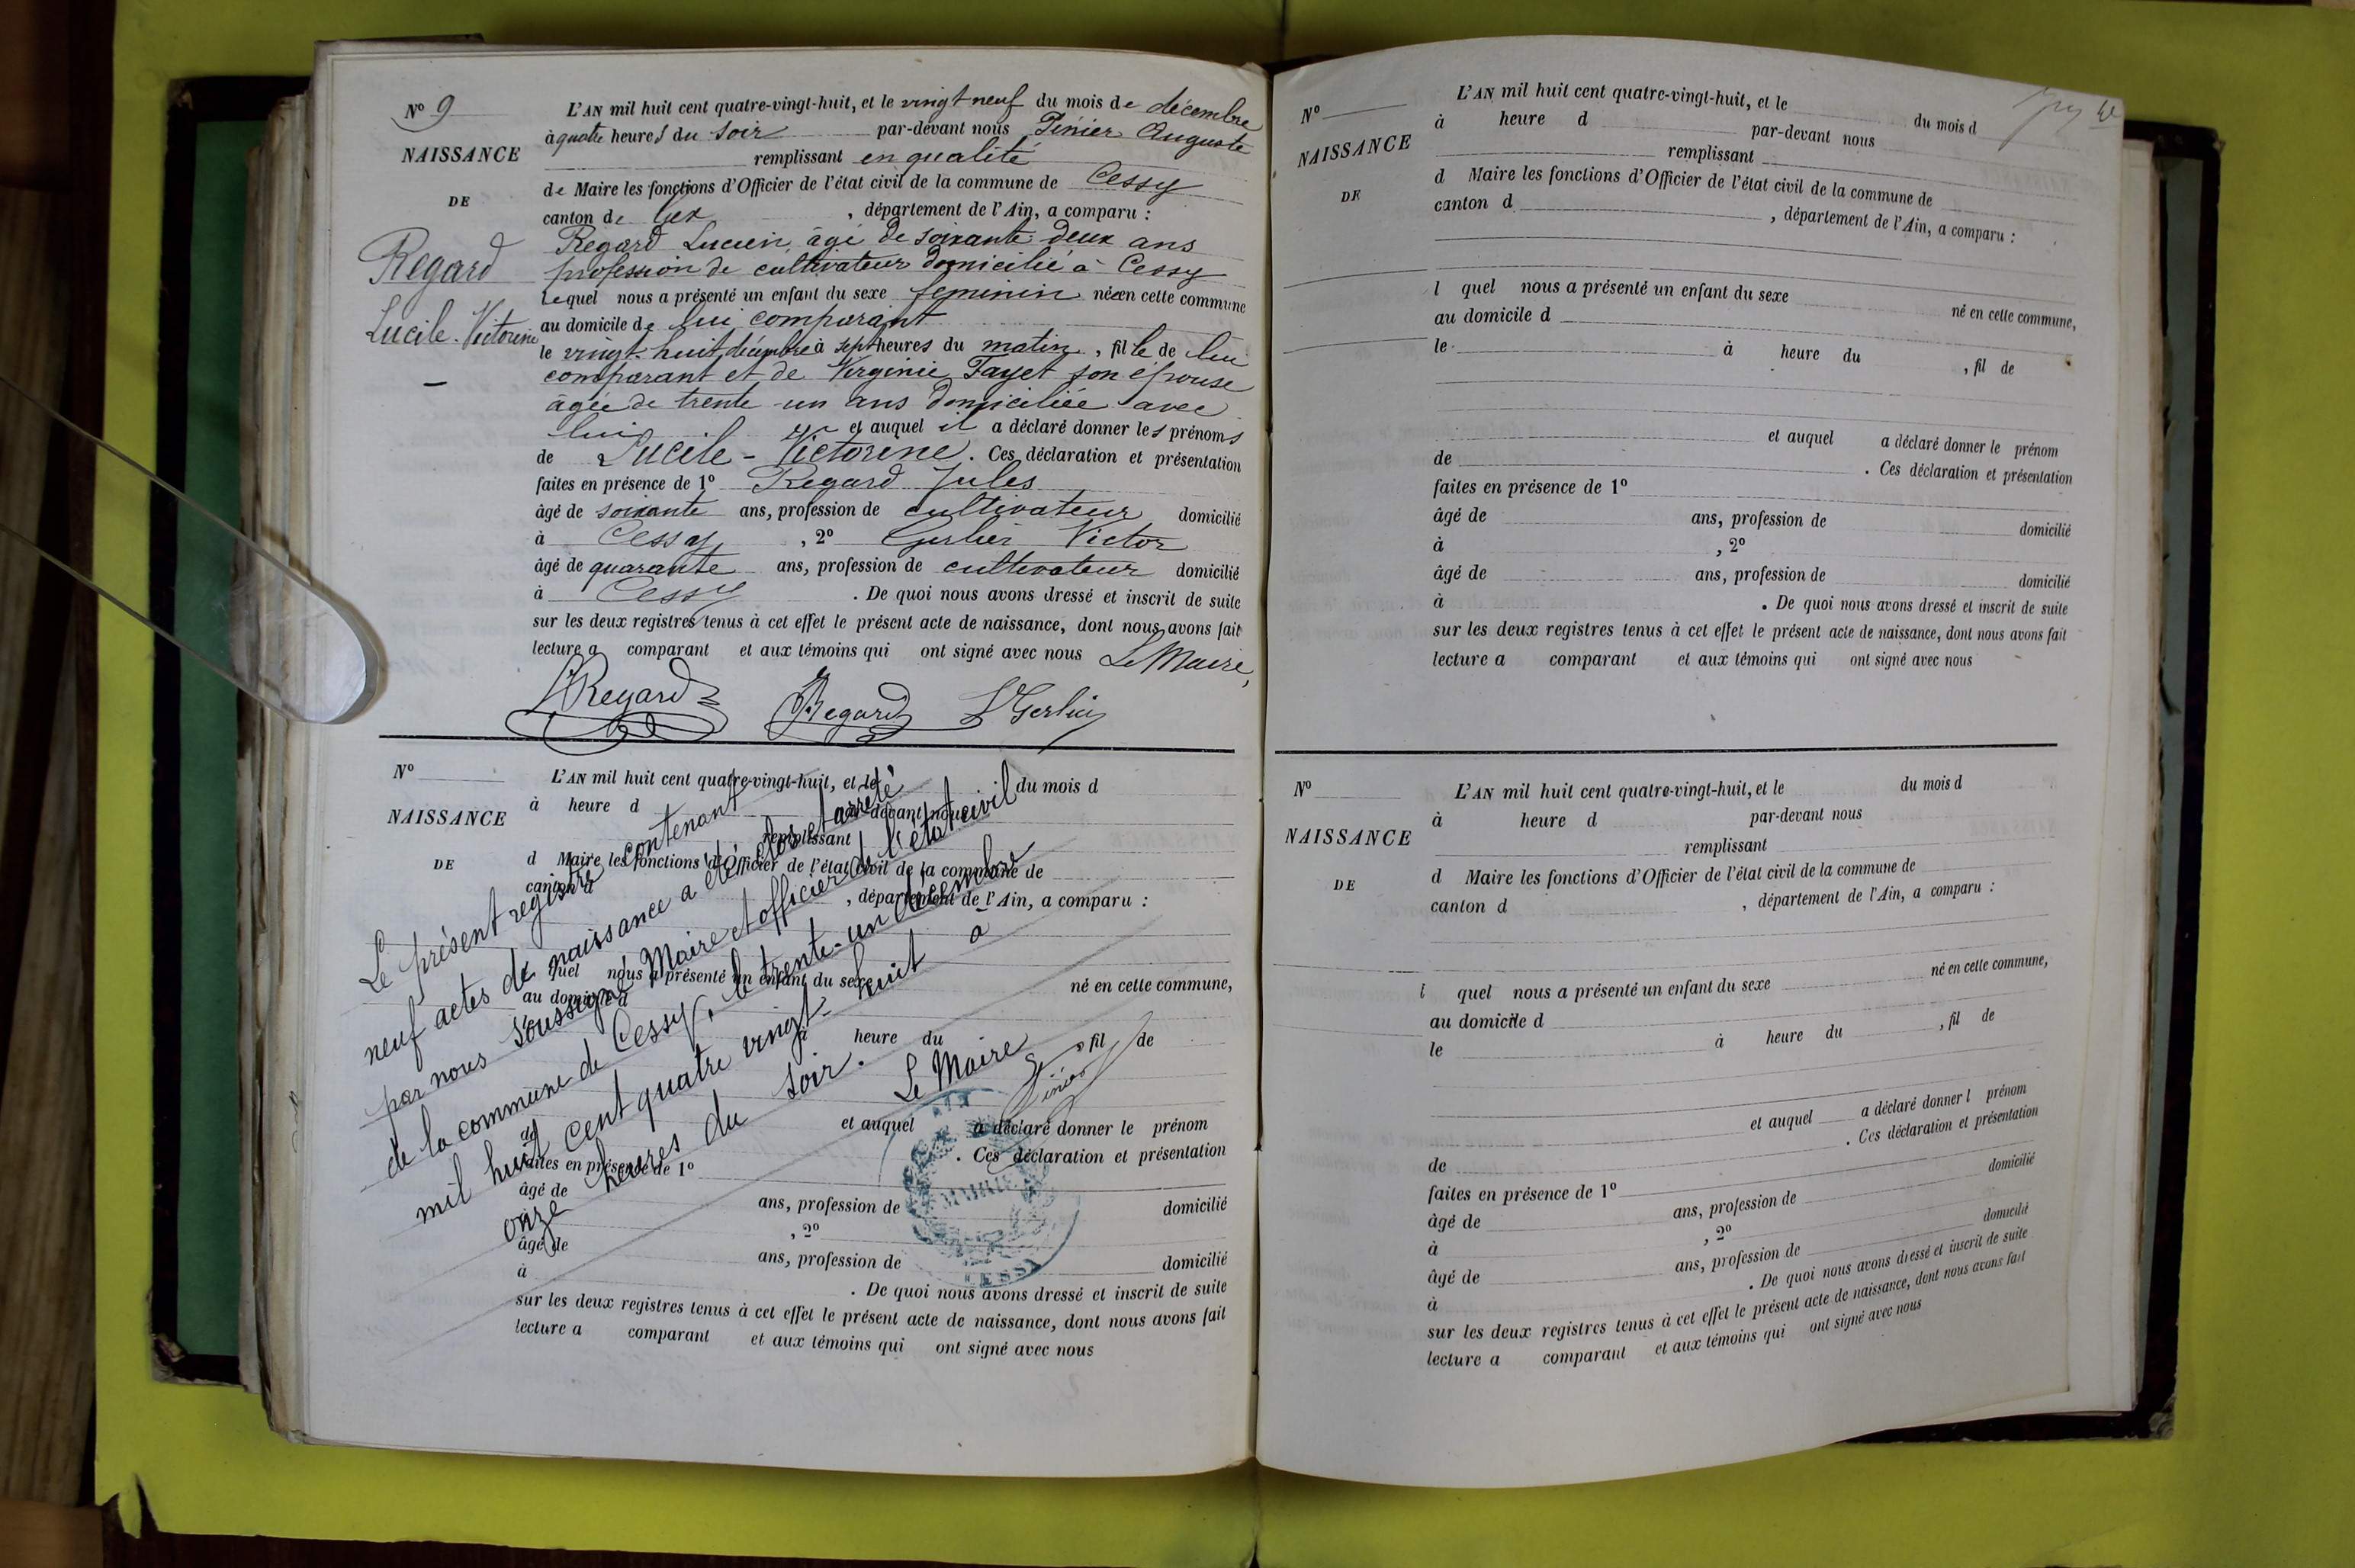 N° 9
NAISSANCE
DE
Regard
Lucile-Victorine
L'AN mil huit cent quatre-vingt-huit, et le vingt neuf du mois de décembre
à quatre heures du soir par-devant nous Pinier Auguste
remplissant en qualité
de Maire les fonctions d'Officier de l'état civil de la commune de Cessy
canton de Gex, département de l'Ain, a comparu :
Regard Lucien âgé de soixante deux ans
profession de cultivateur domicilié à Cessy
lequel nous a présenté un enfant du sexe feminin née en cette commune
au domicile de lui comparant
le vingt-huit décembre à sept heures du matin, fille de lui
comparant et de Virginie Fayet son épouse
âgée de trente-un ans domiciliée avec
lui et auquel il a déclaré donner les prénoms
de Lucile-Victorine. Ces déclaration et présentation
faites en présence de 1° Regard Jules
âgé de soixante ans, profession de cultivateur domicilié
à Cessy, 2° Gerlier Victor
âgé de quarante ans, profession de cultivateur domicilié
à Cessy. De quoi nous avons dressé et inscrit de suite
sur les deux registres tenus à cet effet le présent acte de naissance, dont nous avons fait
lecture a comparant et aux témoins qui ont signé avec nous Le Maire,
Regard Regard Gerlier
N°
NAISSANCE
DE
L'AN mil huit cent quatre-vingt-huit, et le du mois d
à heure d par-devant nous
remplissant
d Maire les fonctions d'Officier de l'état civil de la commune de
canton d , département de l'Ain, a comparu :
quel nous a présenté un enfant du sexe né en cette commune,
au domicile d
à heure du , fil de
et auquel a déclaré donner le prénom
de . Ces déclaration et présentation
faites en présence de 1°
âgé de ans, profession de domicilié
, 2°
âgé de ans, profession de domicilié
à . De quoi nous avons dressé et inscrit de suite
sur les deux registres tenus à cet effet le présent acte de naissance, dont nous avons fait
lecture a comparant et aux témoins qui ont signé avec nous
Le présent registre contenant
neuf actes de naissance a été clos et arrêté
par nous soussigné Maire et officier de l'état civil
de la commune de Cessy, le trente-un décembre
mil huit cent quatre vingt-huit à
onze heures du soir.
Le Maire
Pinier
MAIRIE
CESSY
N°
NAISSANCE
DE
L'AN mil huit cent quatre-vingt-huit, et le du mois d
à heure d par-devant nous
remplissant
d Maire les fonctions d'Officier de l'état civil de la commune de
canton d , département de l'Ain, a comparu :
l quel nous a présenté un enfant du sexe né en cette commune,
au domicile d
le à heure du , fil de
et auquel a déclaré donner le prénom
de . Ces déclaration et présentation
faites en présence de 1°
âgé de ans, profession de domicilié
à , 2°
âgé de ans, profession de domicilié
à . De quoi nous avons dressé et inscrit de suite
sur les deux registres tenus à cet effet le présent acte de naissance, dont nous avons fait
lecture a comparant et aux témoins qui ont signé avec nous
N°
NAISSANCE
DE
L'AN mil huit cent quatre-vingt-huit, et le du mois d
à heure d par-devant nous
remplissant
d Maire les fonctions d'Officier de l'état civil de la commune de
canton d , département de l'Ain, a comparu :
l quel nous a présenté un enfant du sexe né en cette commune,
au domicile d
le à heure du , fil de
et auquel a déclaré donner l prénom
de . Ces déclaration et présentation
faites en présence de 1°
âgé de ans, profession de domicilié
à , 2°
âgé de ans, profession de domicilié
à . De quoi nous avons dressé et inscrit de suite
sur les deux registres tenus à cet effet le présent acte de naissance, dont nous avons fait
lecture a comparant et aux témoins qui ont signé avec nous